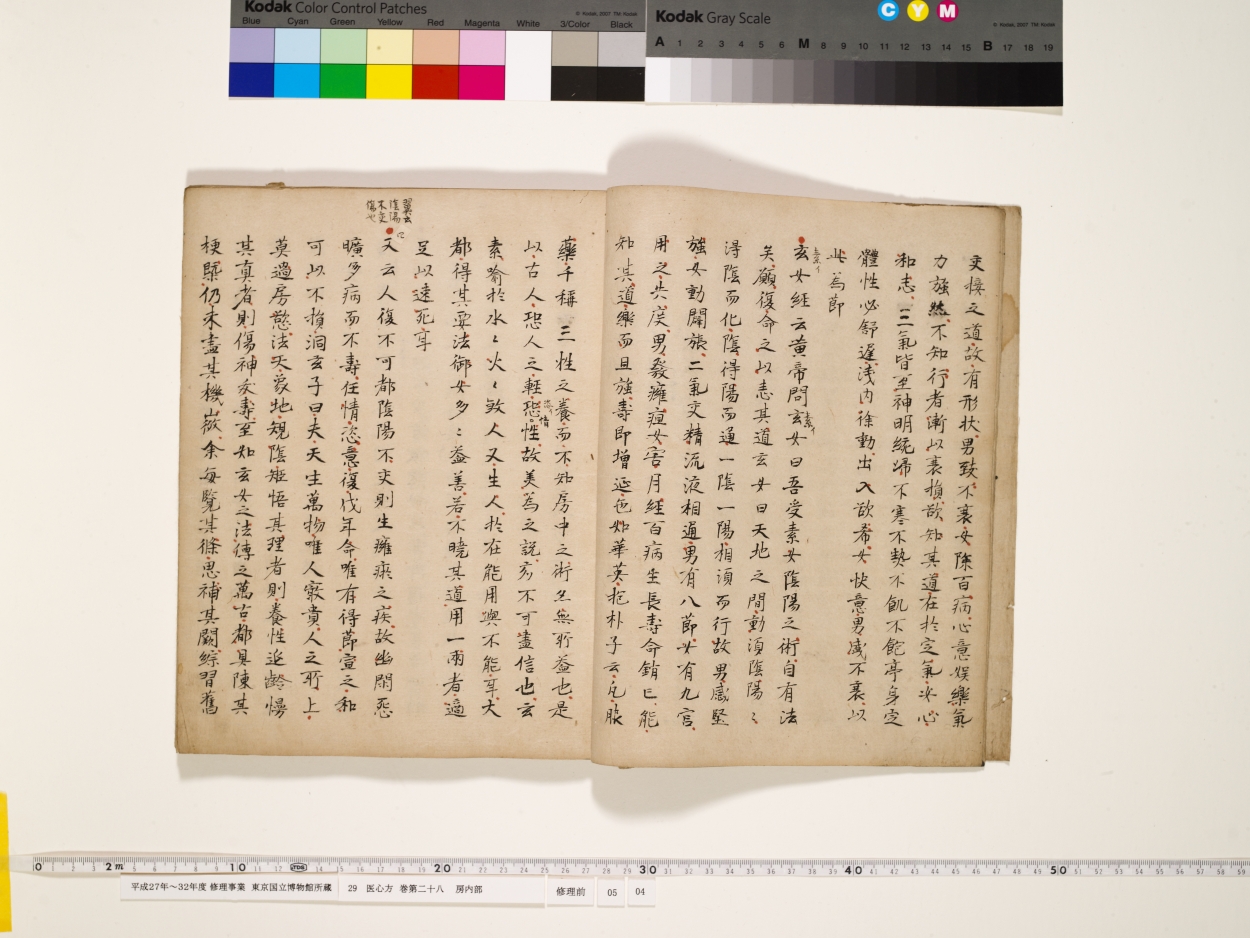 Kodak Color Control Patches
Blue Cyan Green Yellow Red Magenta White 3/Color Black
© Kodak, 2007 TM: Kodak
Kodak Gray Scale
C Y M
© Kodak, 2007 TM: Kodak
A 1 2 3 4 5 6 M 8 9 10 11 12 13 14 15 B 17 18 19
交接之道故有形状男致不衰女除百病心意娯樂氣
力強然不知行者漸以衰損欲知其道在於定氣安心
和志三氣皆至神明統歸不寒不熱不飢不飽亭身定
體性必舒遅浅内徐動出入欲希女快意男盛不衰以
此為節
玄女經云黄帝問玄女曰吾受素女陰陽之術自有法
矣願復命之以悉其道玄女曰天地之間動須陰陽〻
得陰而化陰得陽而通一陰一陽相須而行故男感堅
強女動闢張二氣交精流液相通男有八節女有九宮
用之失度男發癰疽女害月經百病生長壽命銷亡能
知其道樂而且強壽即增延色如華英抱朴子云凡服
藥千種三性之養而不知房中之術亦無所益也是
以古人恐人之輕恣性故美為之説亦不可盡信也玄
素喩於水〻火〻殺人又生人於在能用與不能耳大
都得其要法御女多〻益善若不曉其道用一兩者適
足以速死耳
翼云
陰陽
不交
傷也
又云人復不可都陰陽不交則生癰瘀之疾故幽閑怨
曠多病而不壽任情恣意復伐年命唯有得節宣之和
可以不損洞玄子曰夫天生萬物唯人最貴人之所上
莫過房慾法天象地規陰矩悟其理者則養性延齡慢
其真者則傷神夭壽至如玄女之法傳之萬古都具陳其
梗槩仍未盡其機微余毎覧其條思補其闕綜習舊
平成27年～32年度 修理事業 東京国立博物館所蔵 29 医心方 巻第二十八 房内部 修理前 05 04